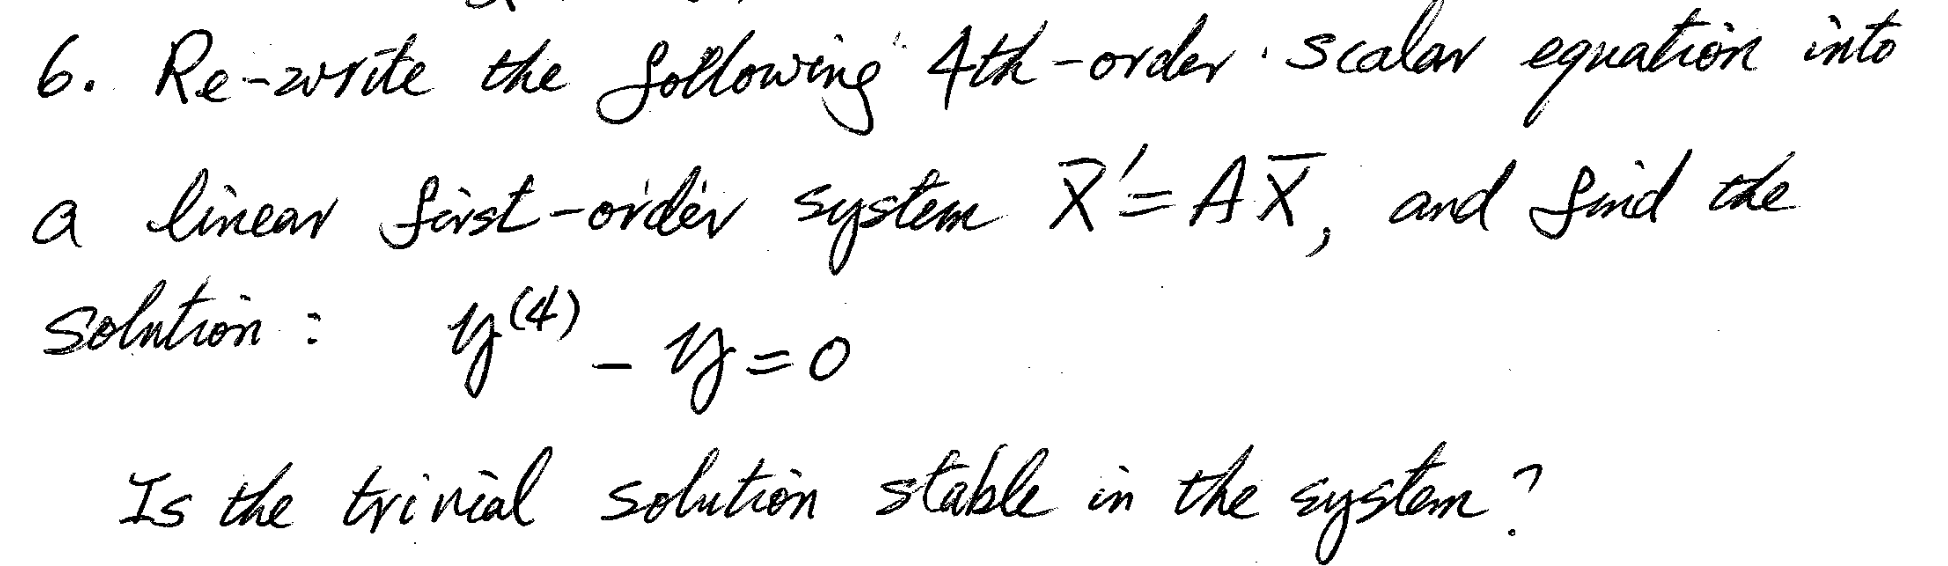 6. Re-write the following 4th-order scalar equation into
a linear first-order system X̄' = AX̄, and find the
solution: y⁽⁴⁾ - y = 0
Is the trivial solution stable in the system?